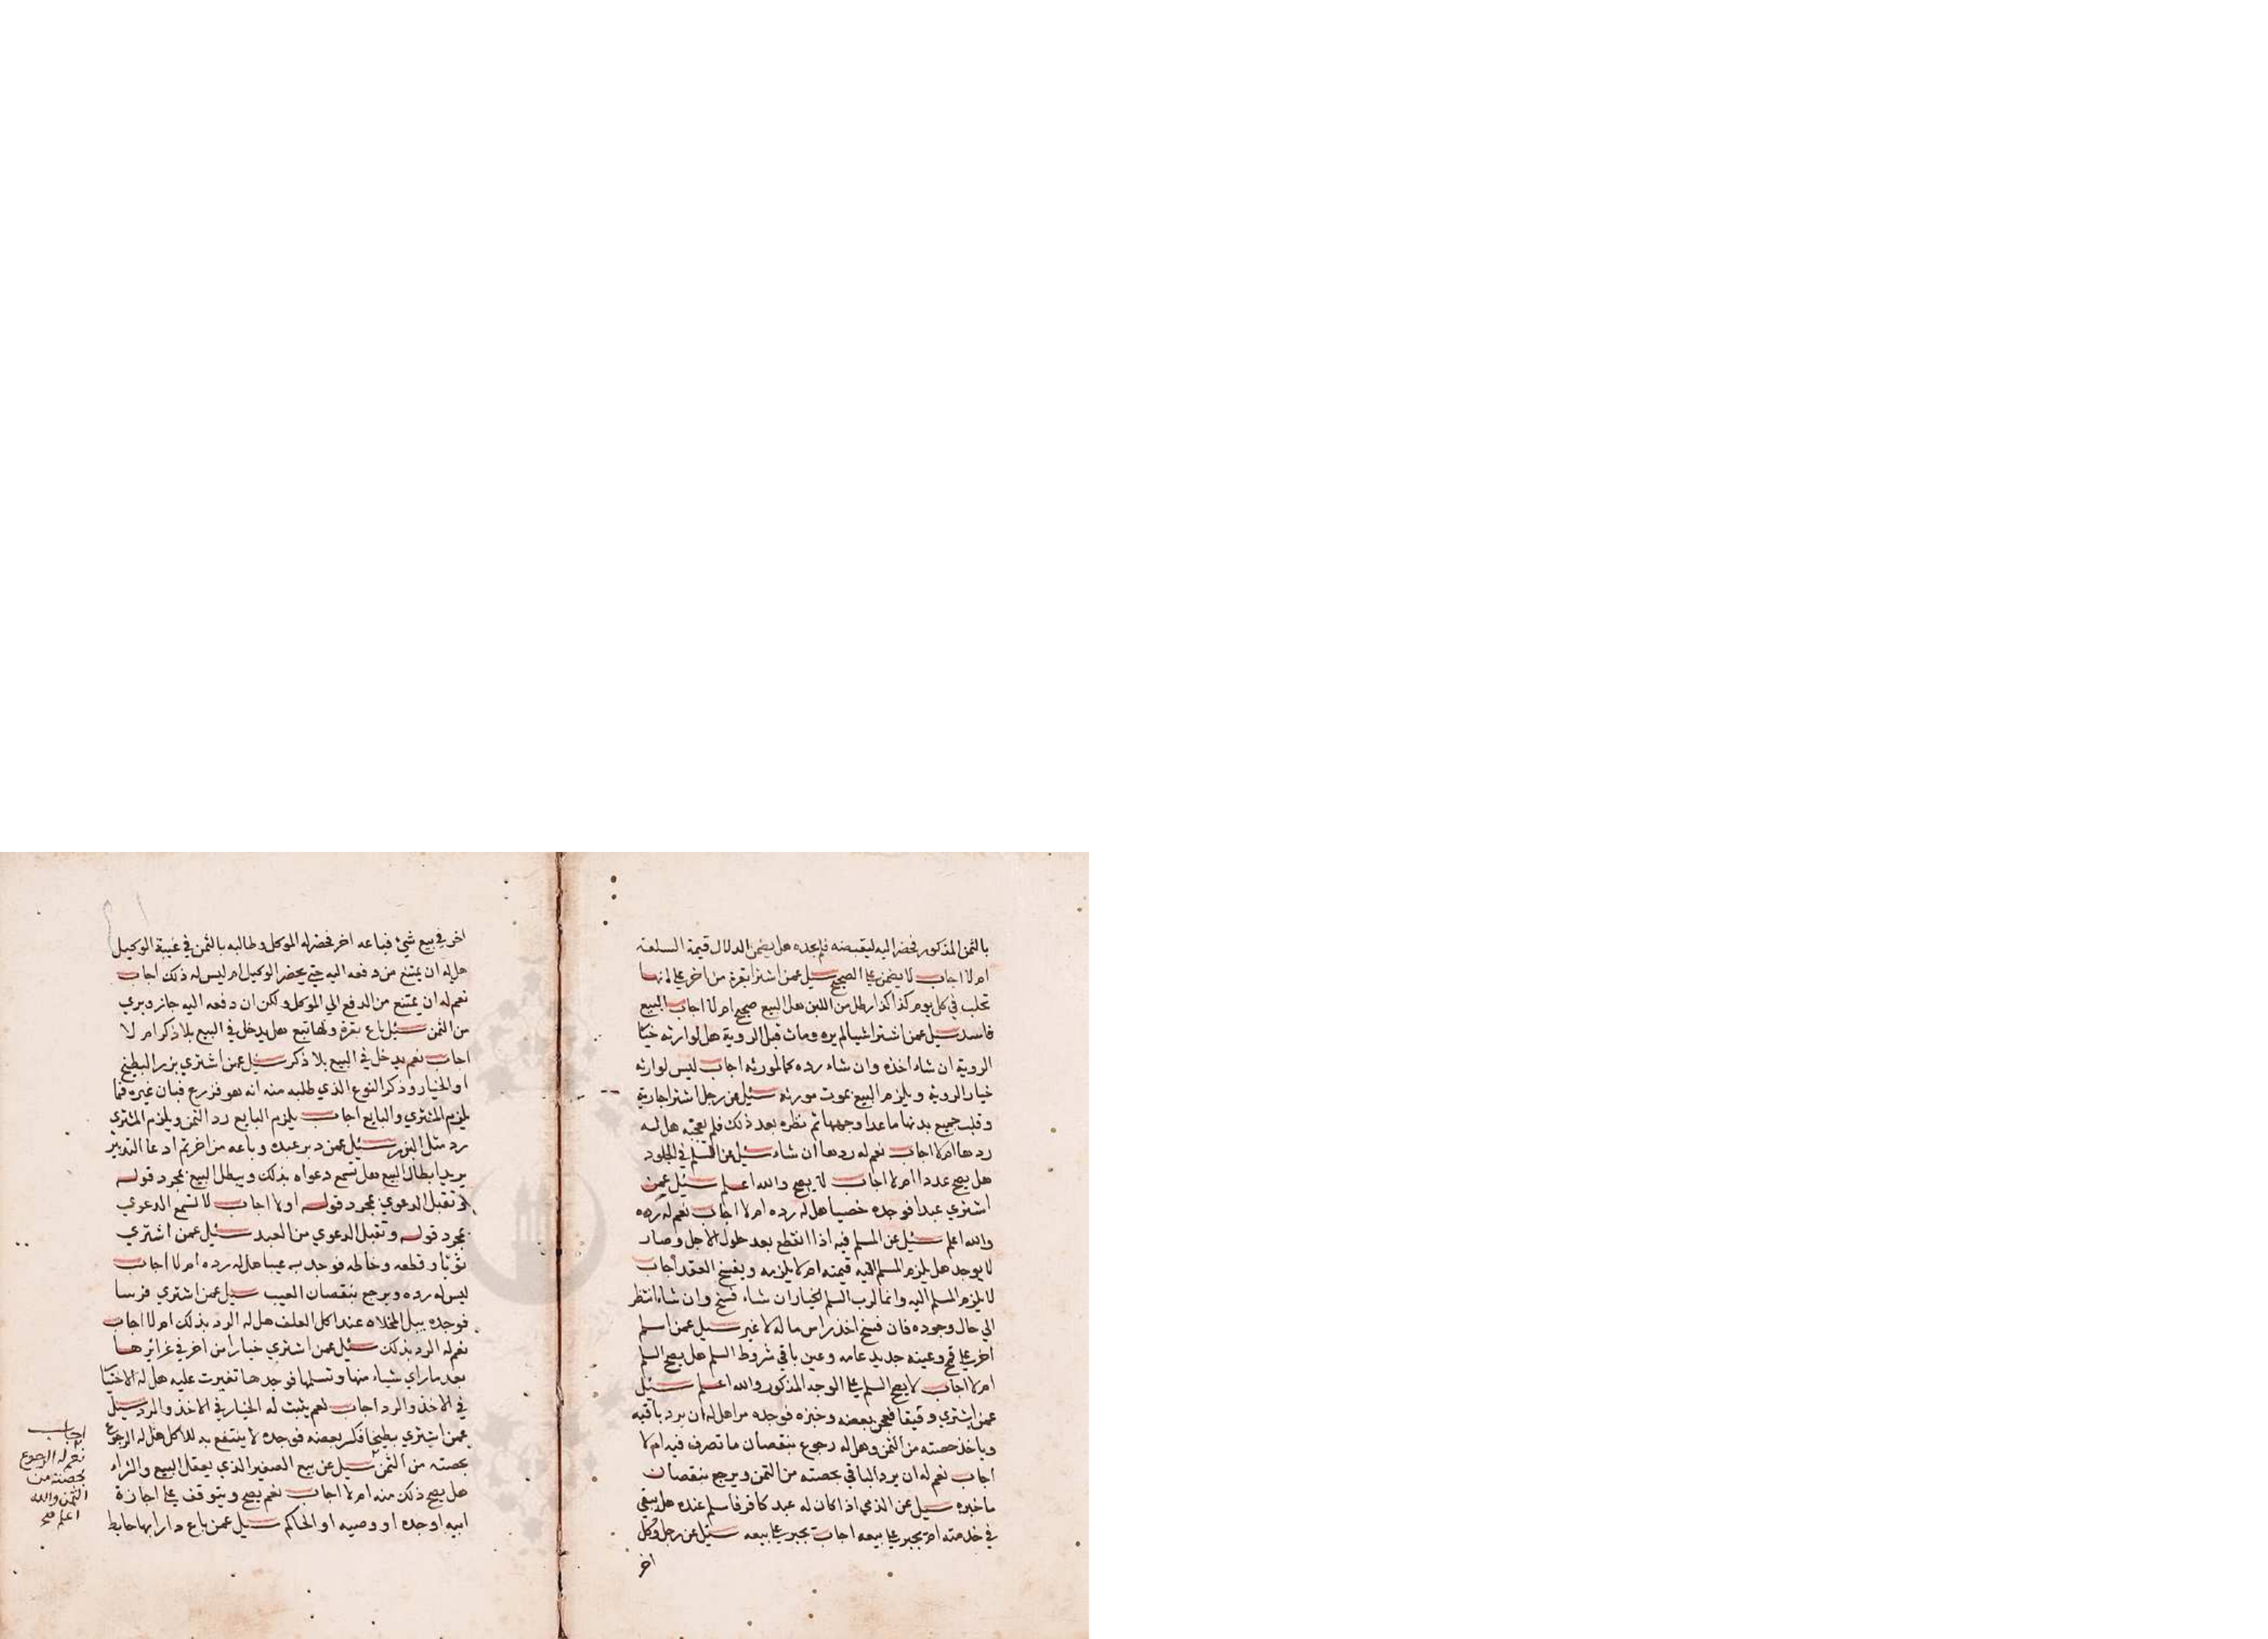 بالثمن المذكور فحضر اليه ليقبضه فلم يجده هل يضمن الدلال قيمة السلعة
ام لا اجاب لا يضمن علي الصحيح سيل عمن اشترا بقرة من اخر علي انها
تحلب في كل يوم كذا كذا رطل من اللبن هل البيع صحيح ام لا اجاب البيع
فاسد سيل عمن اشترا شيا لم يره ومات قبل الروية هل لوارثه خيا
الروية ان شاء اخذه وان شاء رده كالمورثه اجاب ليس لوارثه
خيار الروية ويلزم البيع بموت مورثه سئيل عن رجل اشترا جارية
وقلب جميع بدنها ما عدا وجهها ثم نظره بعد ذلك فلم تعجبه هل له
ردها ام لا اجاب نعم له ردها ان شاء سيل عن السلم في الجلود
هل يصح عددا ام لا اجاب لا يصح والله اعلم سئيل عمن
اشتري عبدا فوجده خصيا هل له رده ام لا اجاب نعم له رده
والله اعلم سئيل عن المسلم فيه اذا انقطع بعد حلول الاجل وصار
لا يوجد هل يلزم المسلم اليه قيمته ام لا يلزمه ويفسخ العقد اجاب
لا يلزم المسلم اليه وانما لرب السلم الخيار ان شاء فسخ وان شاء انتظر
الي حال وجوده فان فسخ اخذ راس ماله لا غير سيل عمن اسلم
اخر علي قمح وعينه جديد عامه وعين باقي شروط السلم هل يصح السلم
ام لا اجاب لا يصح السلم علي الوجه المذكور والله اعلم سئيل
عمن اشتري دقيقا فعجن بعضه وخبزه فوجده مرا هل له ان يرد باقيه
وياخذ حصته من الثمن وهل له رجوع بنقصان ما تصرف فيه ام لا
اجاب نعم له ان يرد الباقي بحصته من الثمن ويرجع بنقصان
ما خبزه سيل عن الذمي اذا كان له عبد كافر فاسلم عنده هل يبقي
في خدمته ام يجبر علي بيعه اجاب يجبر علي بيعه سئيل عن رجل وكل
اخر
اخر في بيع شي فباعه اخر فحضر له الموكل وطالبه بالثمن في غيبة الوكيل
هل له ان يمتنع من دفعه اليه حتي يحضر الوكيل ام ليس له ذلك اجاب
نعم له ان يمتنع من الدفع الي الموكل ولكن ان دفعه اليه جاز وبري
من الثمن سئيل باع بقرة ولها تبع هل يدخل في البيع بلا ذكر ام لا
اجاب نعم يدخل في البيع بلا ذكر سئيل عمن اشتري بزر البطيخ
او الخيار وذكر النوع الذي طلبه منه انه هو فزرع فبان غيره فما
يلزم المشتري والبايع اجاب يلزم البايع رد الثمن ويلزم المشتري
رد مثل البزر سئيل عمن دبر عبده وباعه من اخر ثم ادعا التدبير
يريد ابطال البيع هل تسمع دعواه بذلك ويبطل البيع بمجرد قوله
او تقبل الدعوي بمجرد قوله او لا اجاب لا تسمع الدعوي
بمجرد قوله وتقبل الدعوي من العبد سئيل عمن اشتري
ثوبا وقطعه وخاطه فوجد به عيبا هل له رده ام لا اجاب
ليس له رده ويرجع بنقصان العيب سيل عمن اشتري فرسا
فوجده يبل المخلاه عند اكل العلف هل له الرد بذلك ام لا اجاب
نعم له الرد بذلك سئيل عمن اشتري خيارا من اخر في غرائرها
بعد ما راي شياء منها وتسلمها فوجدها تغيرت عليه هل له الاختيا
في الاخذ والرد اجاب نعم يثبت له الخيار في الاخذ والرد سيل
عمن اشتري بطيخا فكسر بعضه فوجده لا ينتفع به للاكل هل له الرجوع
بحصته من الثمن سيل عن بيع الصغير الذي يعقل البيع والشراء
هل يصح ذلك منه ام لا اجاب نعم يصح ويتوقف علي اجازة
ابيه او جده او وصيه او الحاكم سئيل عمن باع دارا بها حايط
اجاب
نعم له الرجوع
بحصته من
الثمن والله
اعلم صح